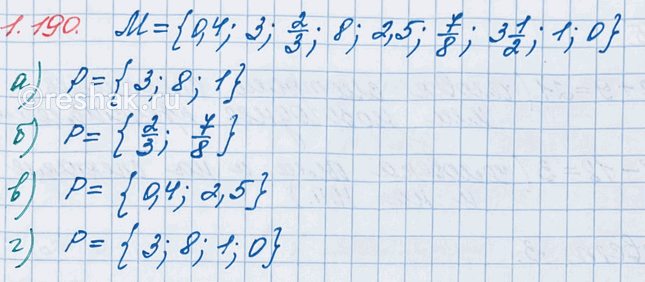 1.190. M = {0,4; 3; 2/3; 8; 2,5; 7/8; 3 1/2; 1; 0}
а) P = {3; 8; 1}
©reshak.ru
б) P = {2/3; 7/8}
в) P = {0,4; 2,5}
г) P = {3; 8; 1; 0}